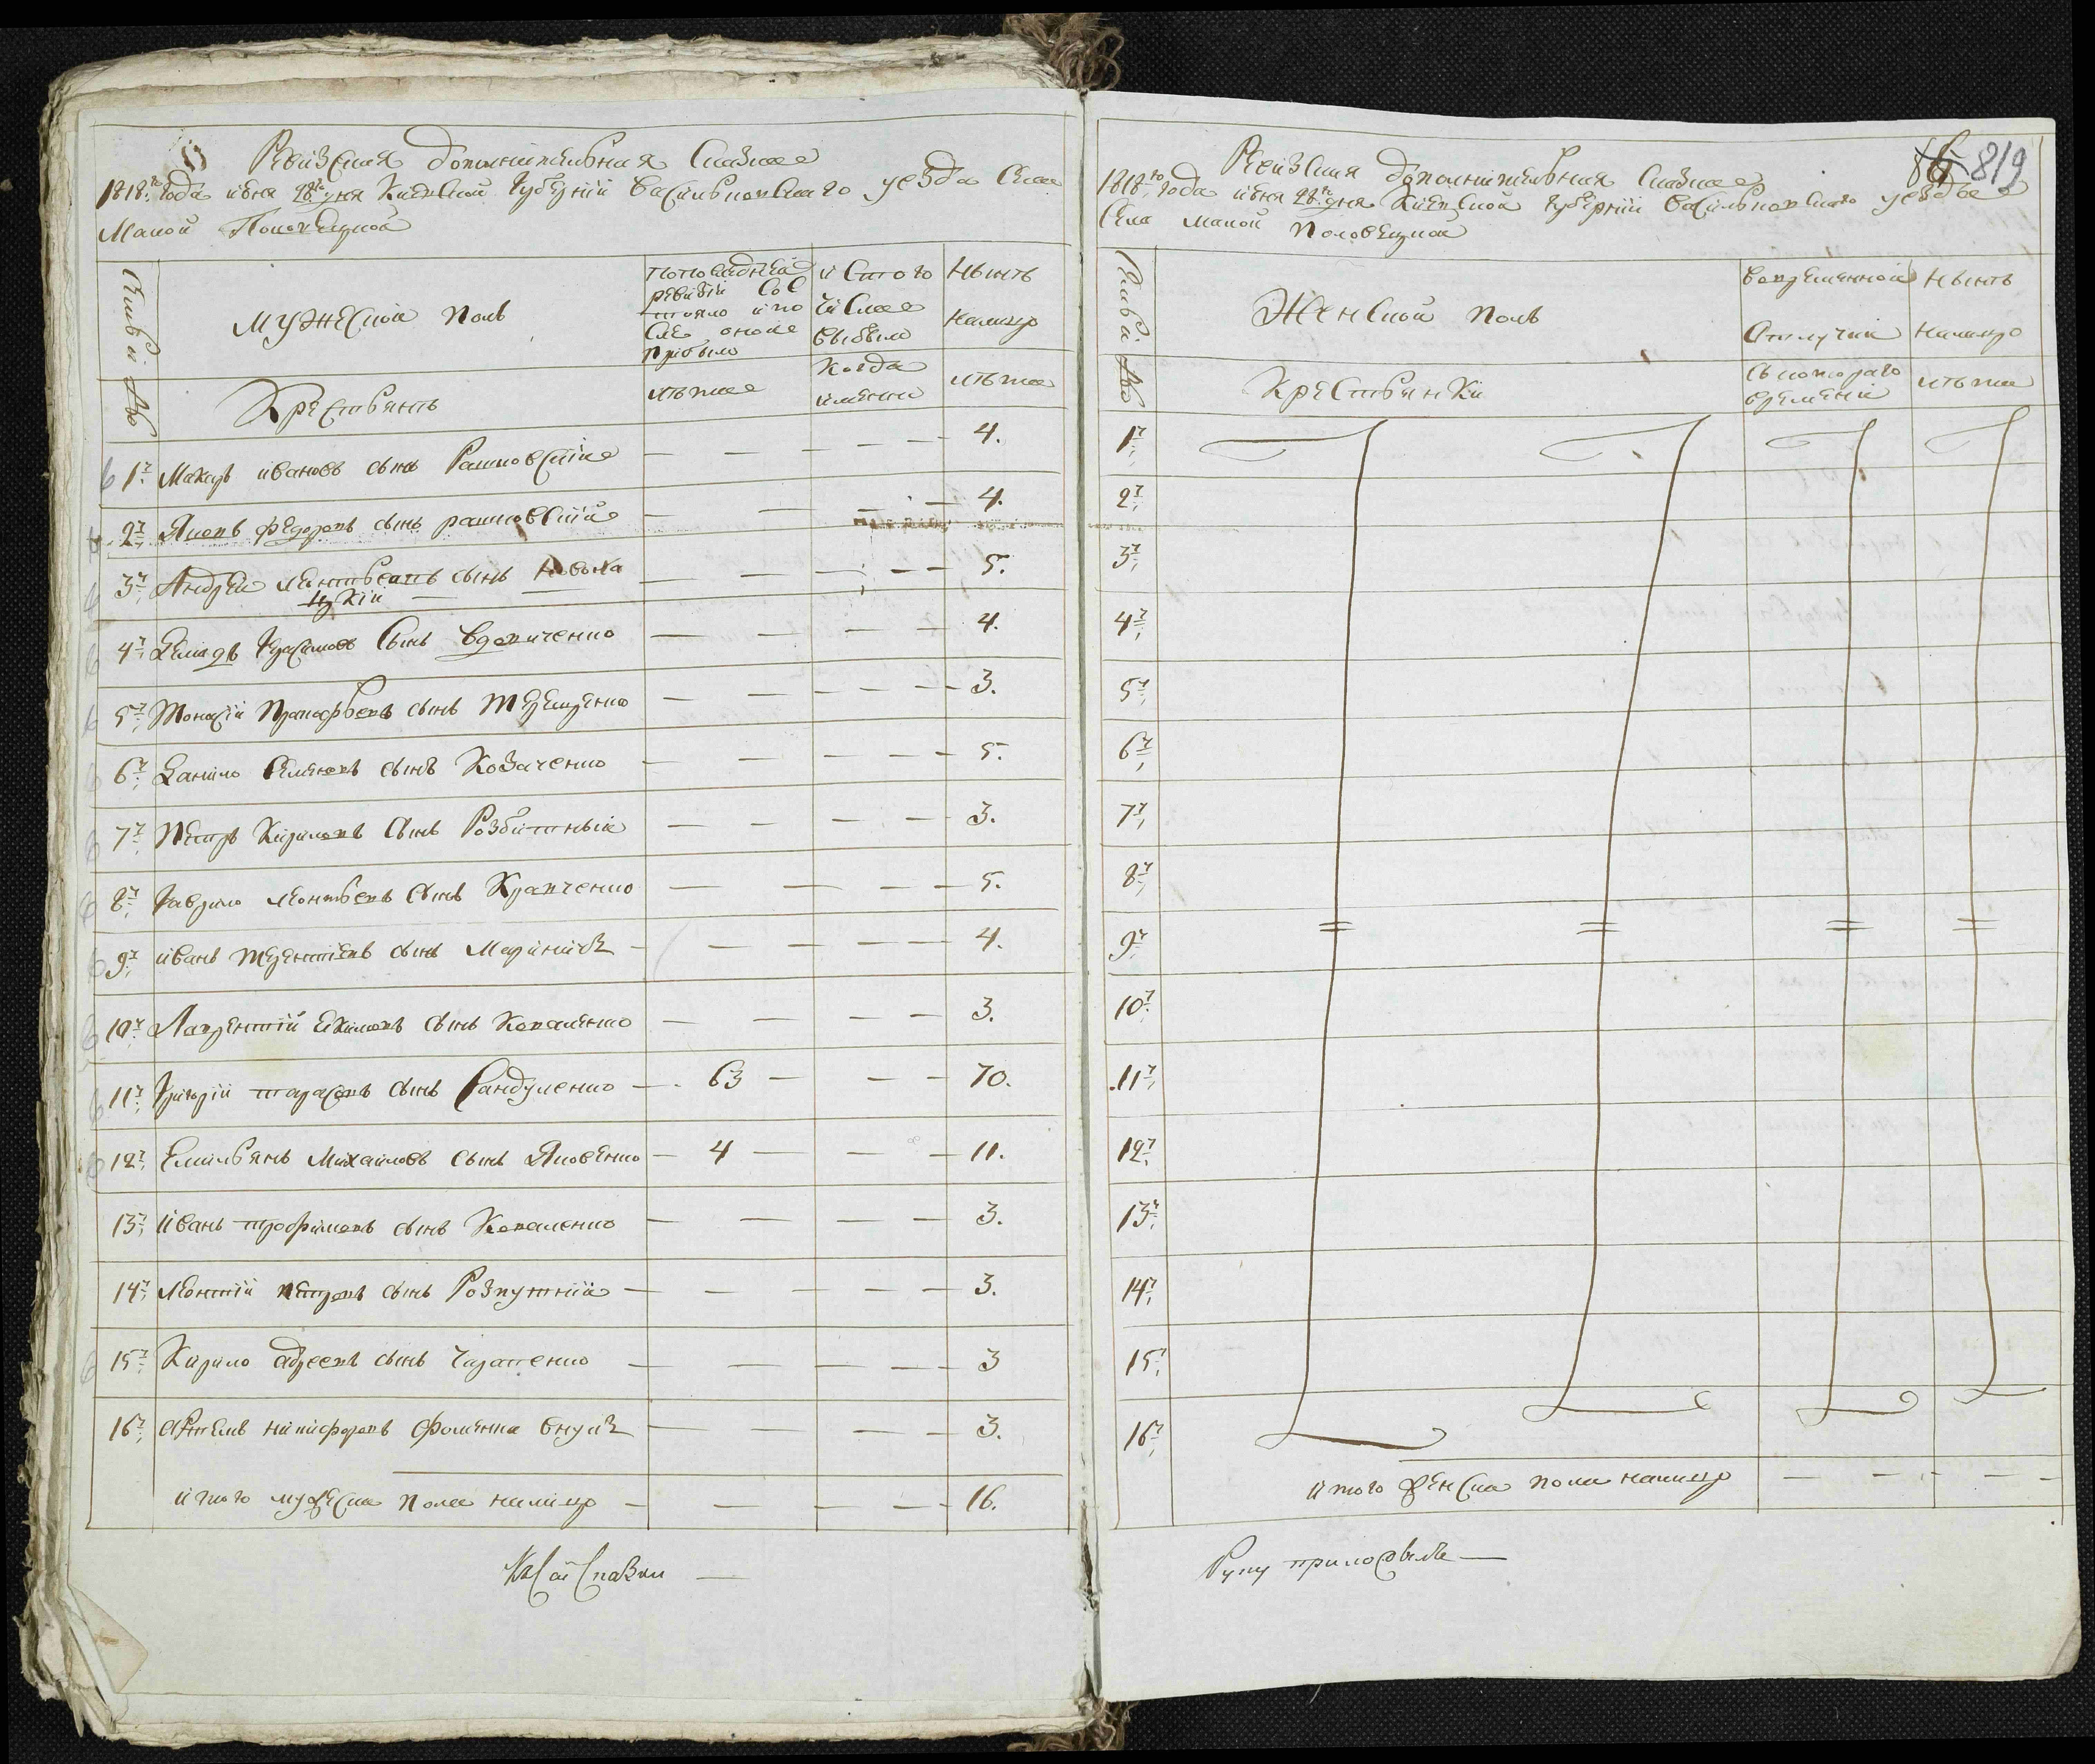 Ревизская дополнительная Сказка
1818го года июня 28го дня Киевской губернии Васильковскаго уезда Села
Малой Половецкой
Семьи №
Мужеской полъ
По последней
ревизии сос
тояло и по
сле оной
прибыло
и стого
числа
выбыло
Нынѣ
налицо
Крестьянъ
лѣта
когда
именно
лѣта
1. Макаръ ивановъ сынъ 4.
2. Яковъ федоровъ сынъ 4.
3. Андрей леонтьевъ сынъ 5.
цкій
4. Демидъ Герасимовъ сынъ Вдовиченко 4.
5. Прокофьевъ сынъ Терещенко 3.
6. Данило Семеновъ сынъ Козаченко 5.
7. Петръ Кириловъ сынъ Розбитный 3.
8. Гаврило леонтьевъ сынъ Кравченко 5.
9. иванъ терентіевъ сынъ 4.
10. Лаврентій Екимовъ сынъ Коваленко 3.
11. Григорій тарасовъ сынъ Сандуленко 63 70.
12. Емильянъ Михайловъ сынъ Яковенко 4 11.
13. иванъ трофимовъ сынъ Коваленко 3.
14. леонтій петровъ сынъ Розпутній 3.
15. Кирило сынъ 3
16. никифоровъ Фоменка внукъ 3.
итого мужеска пола налицо 16.
К сей сказки
819
Ревизская дополнительная Сказка
1818го года июня 28го дня Киевской губерний Васильковскаго уезда
Села Малой Половецкой
Семьи №
Женской полъ
вовременной
отлучки
Нынѣ
налицо
Крестьянки
съ котораго
времени
лѣта
1.
2.
3.
4.
5.
6.
7.
8.
9.
10.
11.
12.
13.
14.
15.
16.
итого женска пола налицо
Руку приложилъ